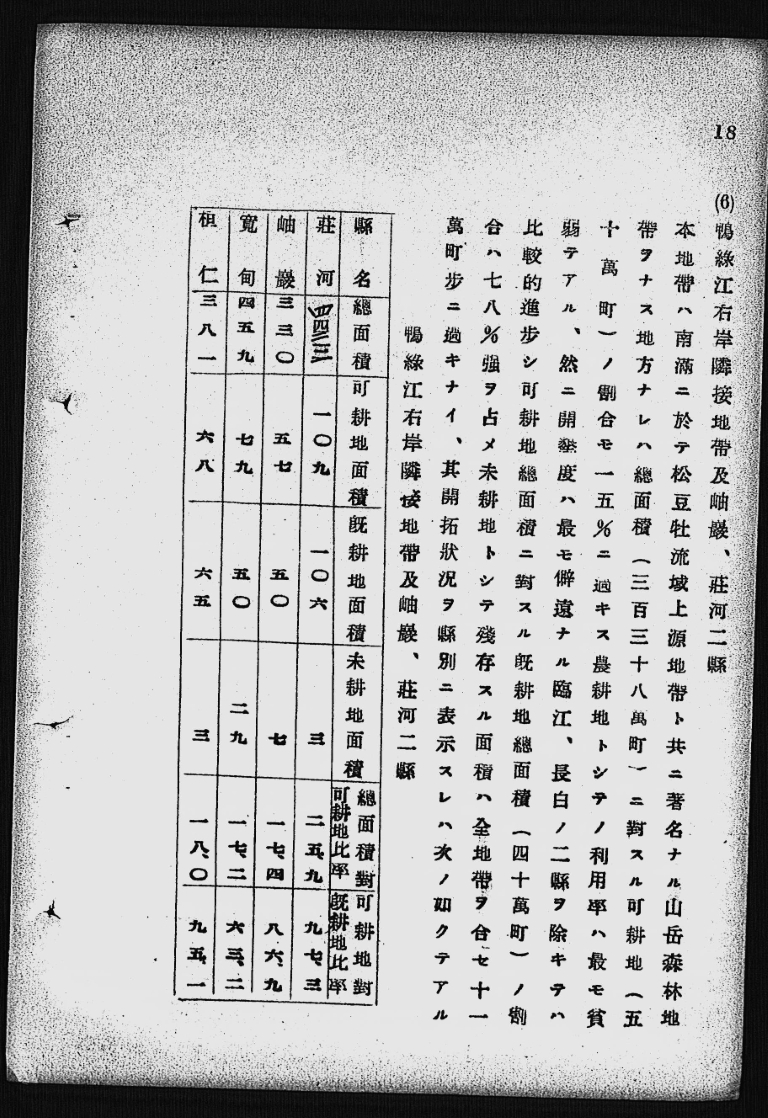 18
(6) 鴨綠江右岸隣接地帶及岫巖、莊河二縣
本地帶ハ南滿ニ於テ松豆牡流域上源地帶ト共ニ著名ナル山岳森林地
帶ヲナス地方ナレハ總面積(三百三十八萬町)ニ對スル可耕地(五
十萬町)ノ割合モ一五%ニ過キス農耕地トシテノ利用率ハ最モ貧
弱テアル、然ニ開墾度ハ最モ僻遠ナル臨江、長白ノ二縣ヲ除キテハ
比較的進步シ可耕地總面積ニ對スル既耕地總面積(四十萬町)ノ割
合ハ七八%强ヲ占メ未耕地トシテ殘存スル面積ハ全地帶ヲ合セ十一
萬町步ニ過キナイ、其開拓狀況ヲ縣別ニ表示スレハ次ノ如クテアル
鴨綠江右岸隣接地帶及岫巖、莊河二縣
縣名 總面積 可耕地面積 既耕地面積 未耕地面積 總面積對可耕地比率 可耕地對既耕地比率
莊河 一〇九 一〇六 三 二五、九 九七、三
岫巖 三三〇 五七 五〇 七 一七、四 八六、九
寬甸 四五九 七九 五〇 二九 一七、二 六三、二
桓仁 三八一 六八 六五 三 一八、〇 九五、一